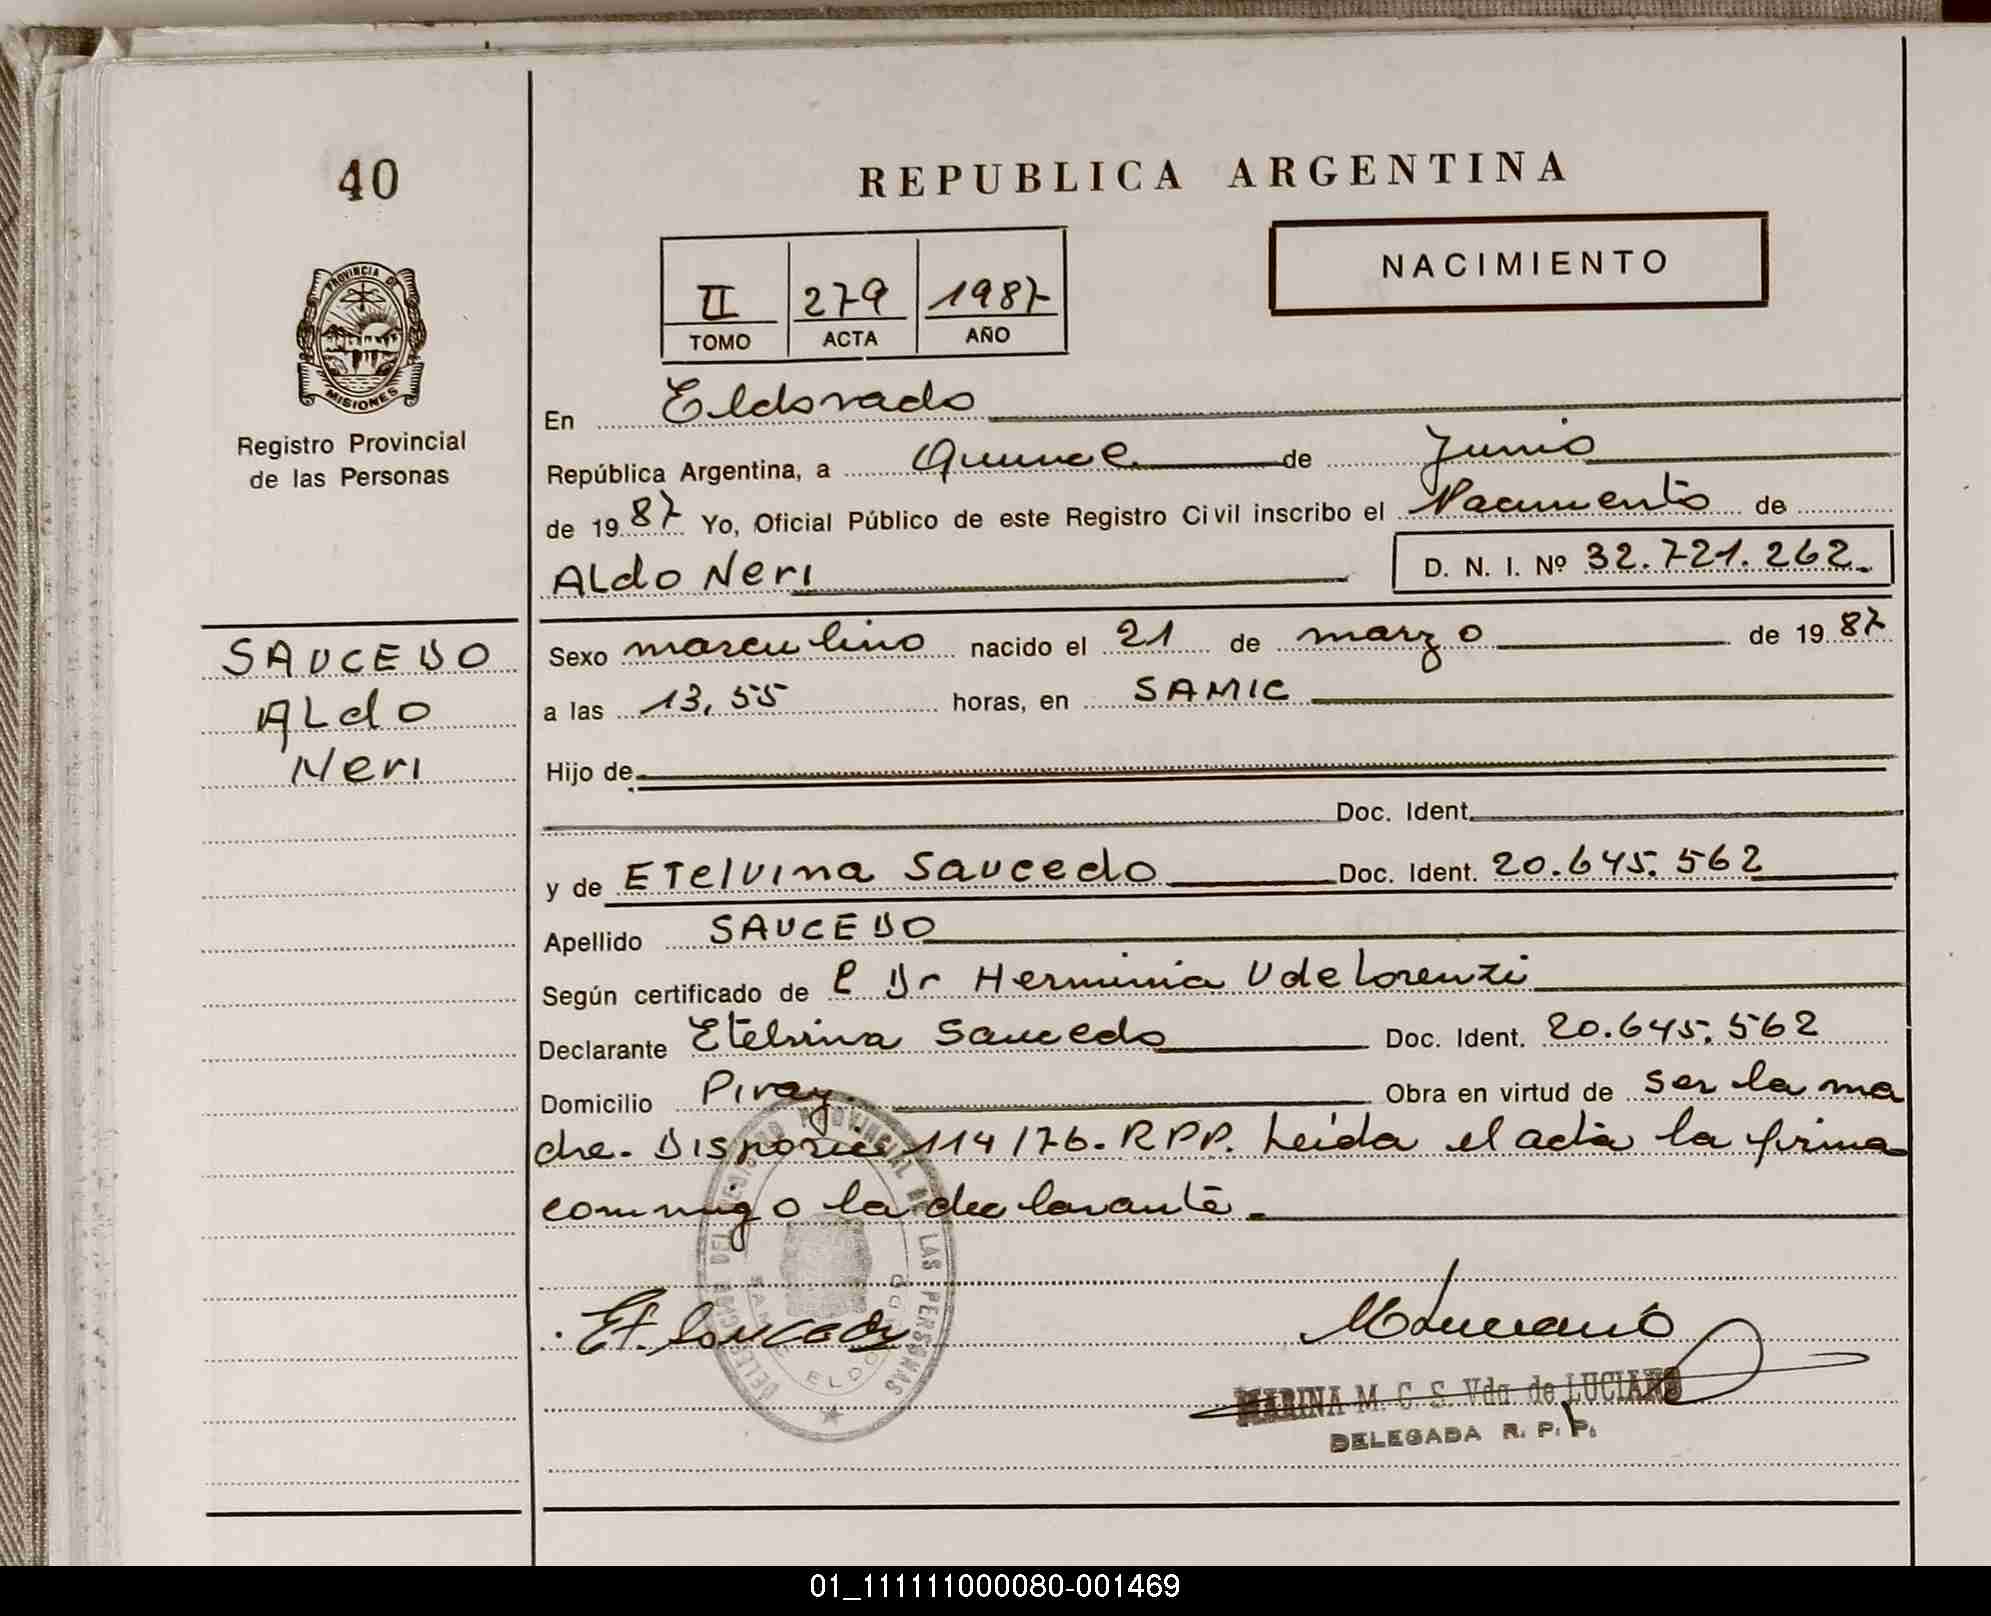 40
REPUBLICA ARGENTINA
NACIMIENTO
II 279 1987
TOMO ACTA AÑO
PROVINCIA DE
MISIONES
Registro Provincial
de las Personas
En Eldorado
República Argentina, a Quince de Junio
de 1987 Yo, Oficial Público de este Registro Civil inscribo el Nacimiento de
Aldo Neri D. N. I. Nº 32.721.262.
SAUCEDO
Aldo
Neri
Sexo masculino nacido el 21 de marzo de 1987
a las 13,55 horas, en SAMIC
Hijo de
Doc. Ident.
y de Etelvina Saucedo Doc. Ident. 20.645.562
Apellido SAUCEDO
Según certificado de Dr Herminia
Declarante Etelvina Saucedo Doc. Ident. 20.645.562
Domicilio Piray Obra en virtud de ser la ma
dre. Disposic 114/76. RPP. Leída el acta la firma
conmigo la declarante.
Et. Saucedo
MLuciano
MARINA M. C. S. Vda. de LUCIANO
DELEGADA R. P. P.
DEL REGISTRO PROVINCIAL DE LAS PERSONAS
01_111111000080-001469